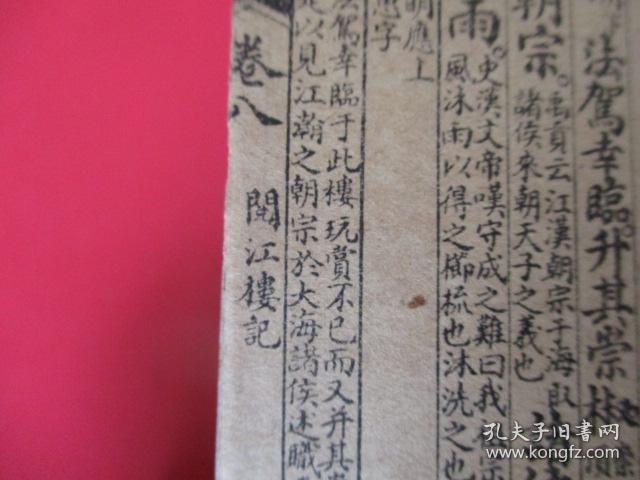 法駕幸臨升其崇椒
朝宗
禹貢云江漢朝宗于海取
諸侯來朝天子之義也
雨
史漢文帝嘆守成之難曰我
風沐雨以得之櫛梳也沐洗之也
明應上
字
駕幸臨于此樓玩賞不已而又升其
以見江潮之朝宗於大海諸侯述職
卷八 閱江樓記
孔夫子旧书网
www.kongfz.com